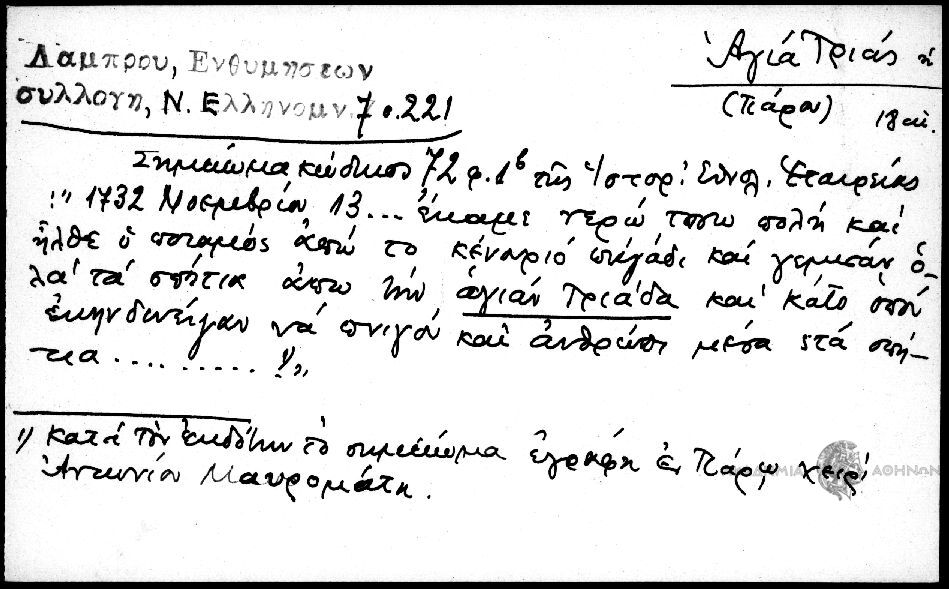 Λαμπρου, Ενθυμησεων
συλλογη, Ν. Ελληνομν. 7 σ. 221
Ἁγιά Τριάς ἡ
(Πάρου) 18 αἰ.
Σημείωμα κώδικος 72 φ. 1β τῆς Ἱστορ. Ἐθνολ. Ἑταιρείας
:" 1732 Νοεμβρίου 13... ἔκαμε νερώ τοσω πολή καί
ἦλθε ὁ ποταμός ἀπώ το κένουριό πηγάδι καί γεμισάν ὁ-
λα τά σπήτια ἀπω τήν ἁγιάν Τριάδα καί κάτο ὁπού
ἐκηνδινεῖγαν νά πνιγοῦ καί ἀνθρῶποι μέσα στά σπή-
τια......... 1)"
1) κατά τόν ἐκδότην τό σημείωμα ἐγράφη ἐν Πάρῳ χειρί
Ἀντωνίου Μαυρομάτη.
ΑΘΗΝΩΝ